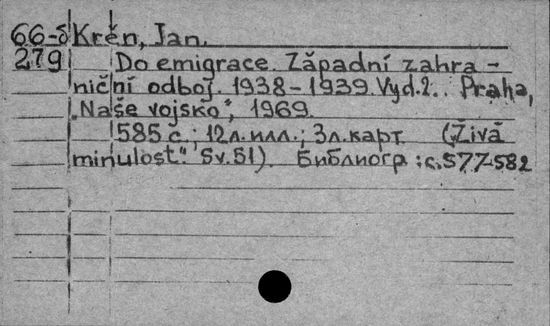 66-8 Krěn, Jan.
279 Do emigrace. Západní zahra-
niční odboj. 1938-1939. Vyd. 2. Praha,
„Naše vojsko“, 1969.
585 с.; 12 л. илл.; 3 л. карт. („Živá
minulost“. Sv. 51). Библиогр.: с. 577-582